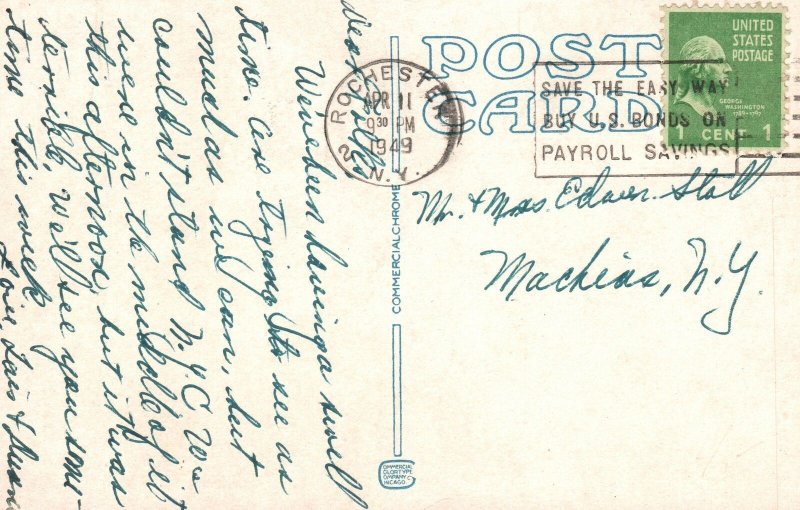 Dear Folks
We've been having a swell
time. Are trying to see as
much as we can, but
couldn't stand N.Y.C. We
were in the middle of it
this afternoon, but it was
terrible. We'll see you some-
time this week.
Love, Lois &
POST
CARD
ROCHESTER
APR 11
9 30 PM
1949
2 N.Y.
SAVE THE EASY WAY
BUY U.S. BONDS ON
PAYROLL SAVINGS
UNITED
STATES
POSTAGE
GEORGE
WASHINGTON
1789-1797
1 CENT 1
Mr. & Mrs. Edwer Stoll
Machias, N.Y.
COMMERCIALCHROME
COMMERCIAL
COLORTYPE
COMPANY
CHICAGO